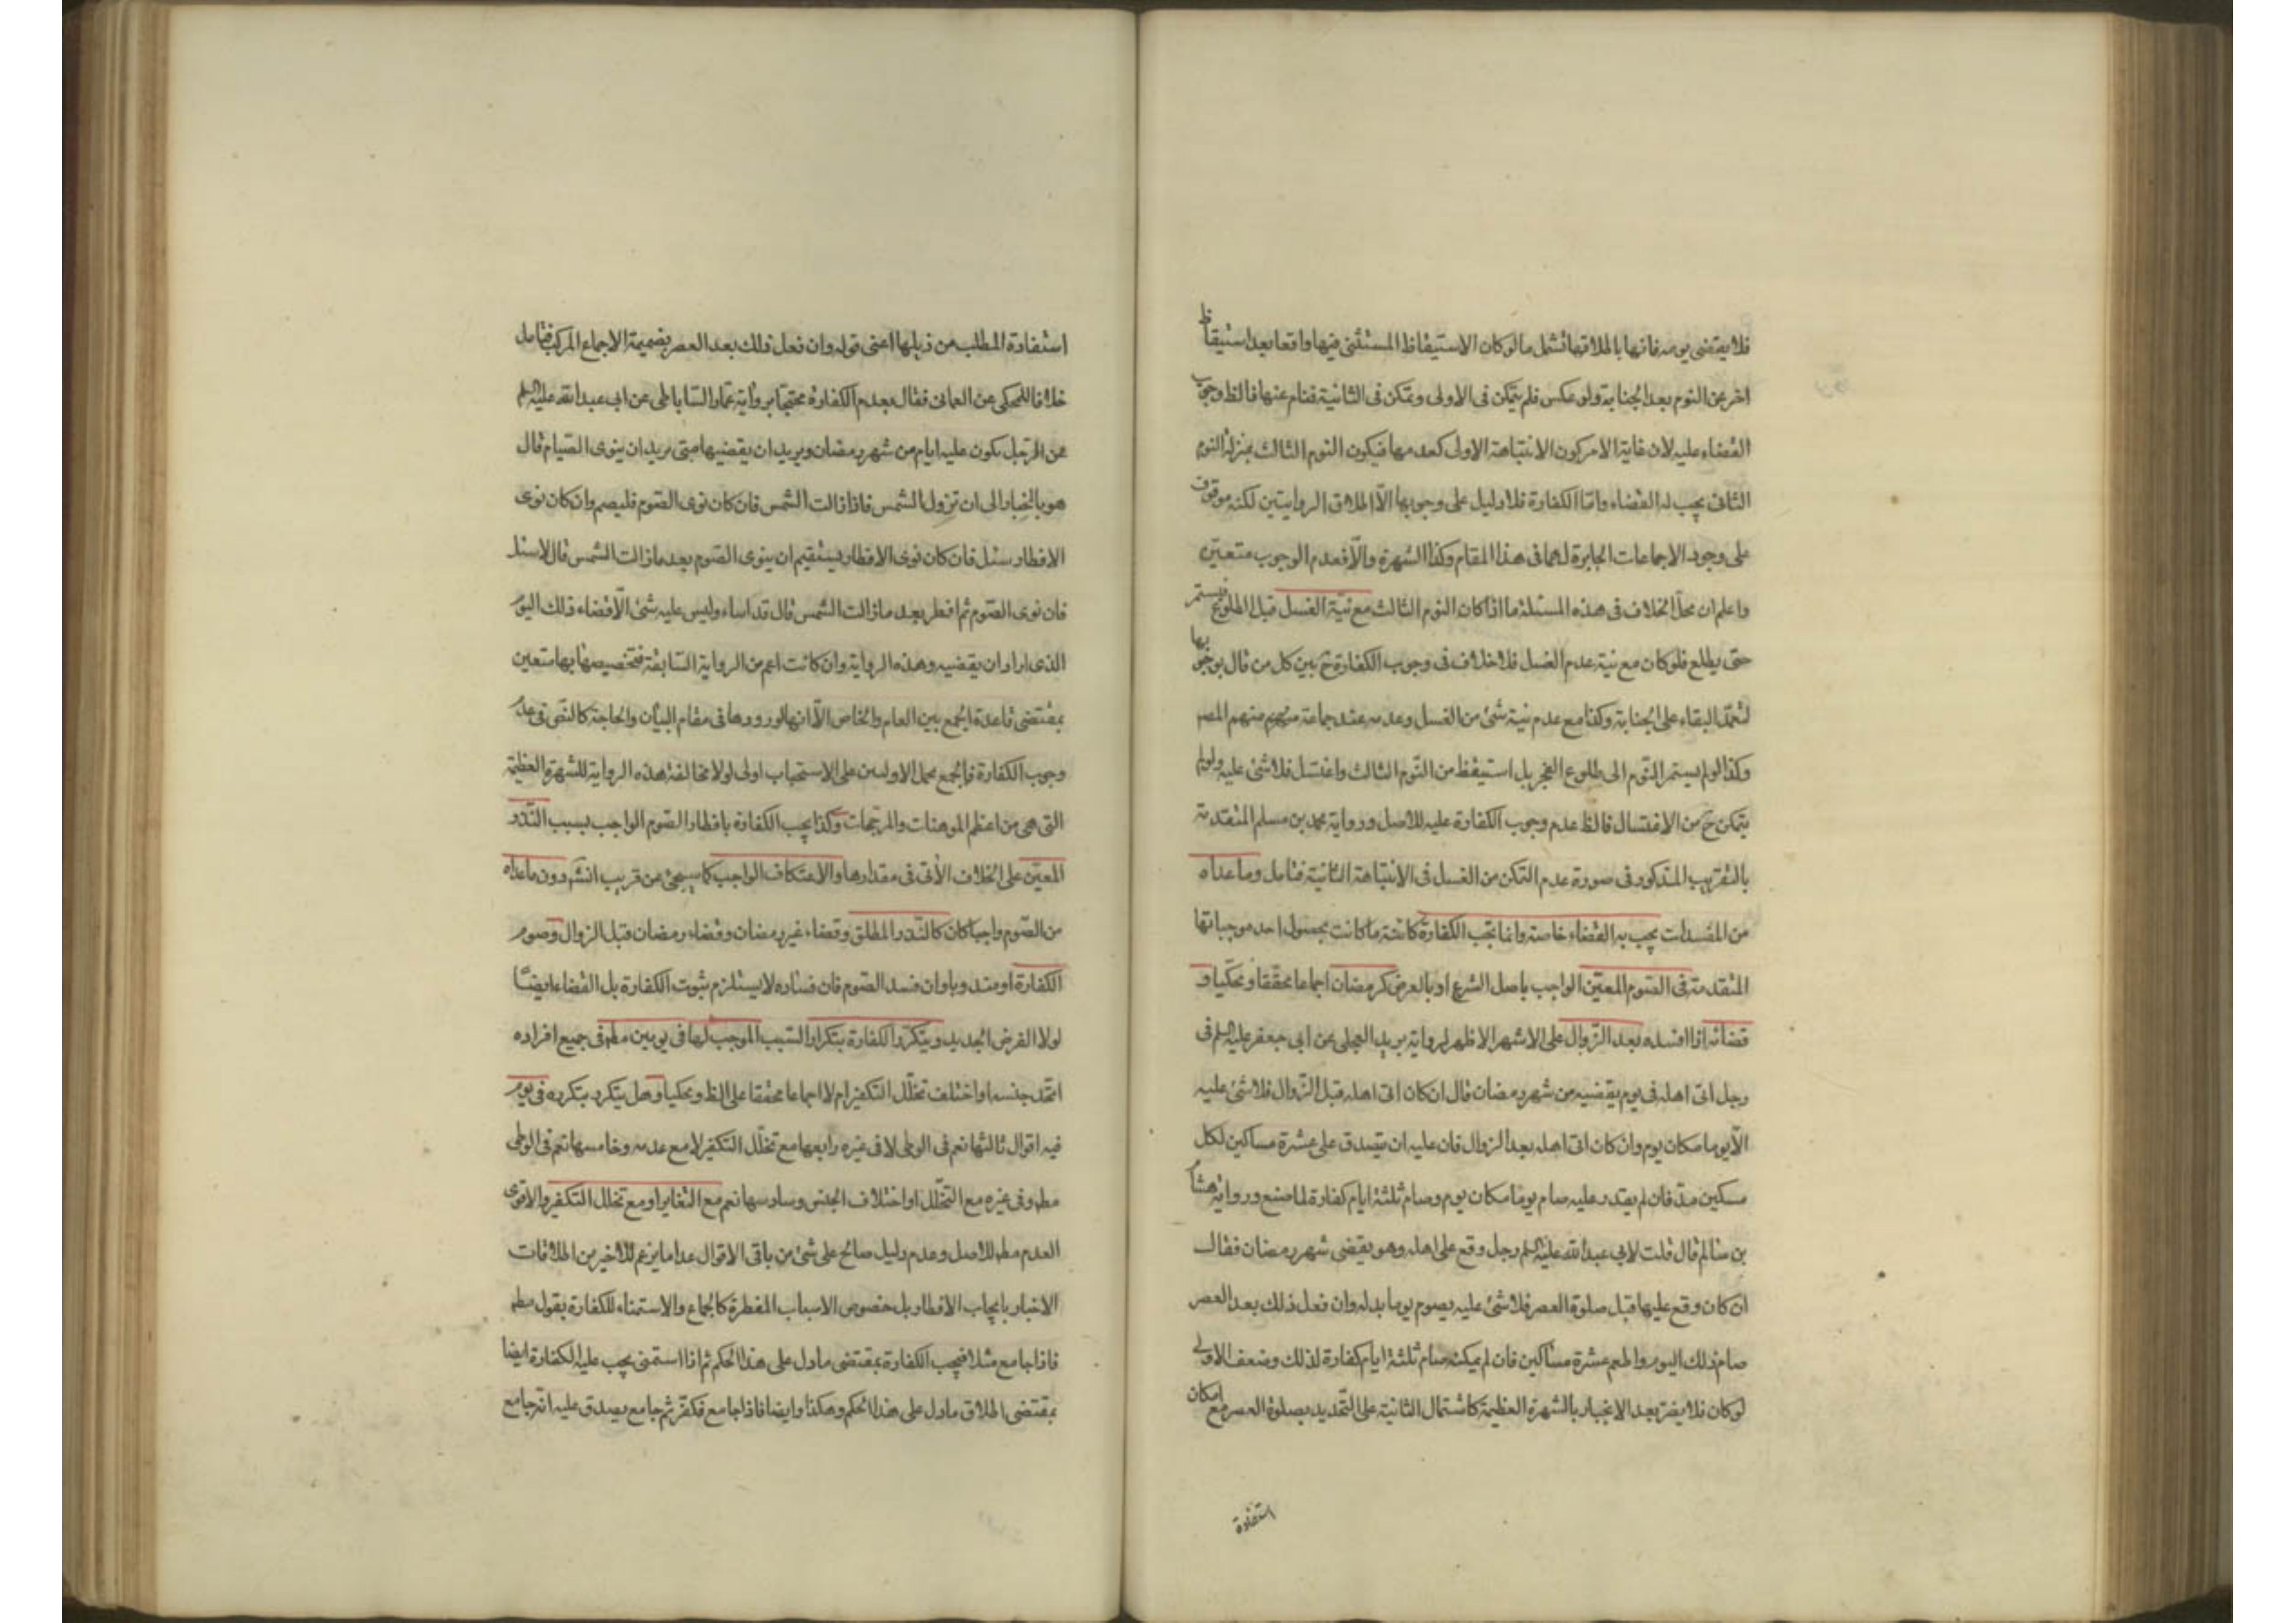 فلا يقتضى يومه فانها باطلاقها تشمل ما لو كان الاستيقاظ المستثنى فيها واقعا بعد استيقاظ
اخر عن النوم بعد الجنابة ولو عكس فلم يتمكن فى الاولى وتمكن فى الثانية فنام عنها فالظ وجوب
القضاء عليه لان غاية الامر كون الانتباهة الاولى كعدمها فيكون النوم الثالث بمنزلة النوم
الثانى يجب له القضاء واما الكفارة فلا دليل على وجوبها الا اطلاق الروايتين لكنه موقوف
على وجود الاجماعات الجابرة لهما فى هذا المقام وكذا الشهرة والا فعدم الوجوب متعين
واعلم ان محل الخلاف فى هذه المسئلة ما اذا كان النوم الثالث مع نية الغسل قبل الطلوع فيستمر
حتى يطلع فلو كان مع نية عدم الغسل فلا خلاف فى وجوب الكفارة ح بين كل من قال بوجوبها
لتعمد البقاء على الجنابة وكذا مع عدم نية شئ من الغسل وعدمه عند جماعة منهم المصـ
وكذا لو لم يستمر النوم الى طلوع الفجر بل استيقظ من النوم الثالث واغتسل فلا شئ عليه ولو لم
يتمكن ح من الاغتسال فالظ عدم وجوب الكفارة عليه للاصل ورواية محمد بن مسلم المتقدمة
بالتقريب المذكور فى صورة عدم التمكن من الغسل فى الانتباهة الثانية فتامل وما عداه
من المفسدات يجب به القضاء خاصة وانما تجب الكفارة كائنة ما كانت بحصول احد موجباتها
المتقدمة فى الصوم المعين الواجب باصل الشرع او بالعرض كرمضان اجماعا محققا ومحكيا و
قضائه اذا افسده بعد الزوال على الاشهر الاظهر لرواية بريد العجلى عن ابى جعفر عليه السلم فى
رجل اتى اهله فى يوم يقضيه من شهر رمضان قال ان كان اتى اهله قبل الزوال فلا شئ عليه
الا يوما مكان يوم وان كان اتى اهله بعد الزوال فان عليه ان يتصدق على عشرة مساكين لكل
مسكين مد فان لم يقدر عليه صام يوما مكان يوم وصام ثلثة ايام كفارة لما صنع ورواية هشام
بن سالم قال قلت لابى عبد الله عليه السلم رجل وقع على اهله وهو يقضى شهر رمضان فقال
ان كان وقع عليها قبل صلوة العصر فلا شئ عليه يصوم يوما بدله وان فعل ذلك بعد العصر
صام ذلك اليوم واطعم عشرة مساكين فان لم يمكنه صام ثلثة ايام كفارة لذلك وضعف الاولى
لو كان فلا يضر بعد الانجبار بالشهرة العظيمة كاشتمال الثانية على التحديد بصلوة العصر مع امكان
استفادة
استفادة المطلب من ذيلها اعنى قوله وان فعل ذلك بعد العصر بضميمة الاجماع المركب فتامل
خلافا للمحكى عن العمانى فقال بعدم الكفارة محتجا برواية عمار الساباطى عن ابى عبد الله عليه السلم
عن الرجل يكون عليه ايام من شهر رمضان ويريد ان يقضيها متى يريد ان ينوى الصيام قال
هو بالخيار الى ان تزول الشمس فاذا زالت الشمس فان كان نوى الصوم فليصم وان كان نوى
الافطار سئل فان كان نوى الافطار يستقيم ان ينوى الصوم بعد ما زالت الشمس قال لا سئل
فان نوى الصوم ثم افطر بعد ما زالت الشمس قال قد اساء وليس عليه شئ الا قضاء ذلك اليوم
الذى اراد ان يقضيه وهذه الرواية وان كانت اعم من الرواية السابقة فتخصيصها بها متعين
بمقتضى قاعدة الجمع بين العام والخاص الا انها لورودها فى مقام البيان والحاجة كالنص فى عدم
وجوب الكفارة فالجمع بحمل الاولين على الاستحباب اولى لولا مخالفة هذه الرواية للشهرة العظيمة
التى هى من اعظم الموهنات والمرجحات وكذا يجب الكفارة بافطار الصوم الواجب بسبب النذر
المعين على الخلاف الآتى فى مقدارها والاعتكاف الواجب كما سيجئ عن قريب انش دون ما عداه
من الصوم واجبا كان كالنذر المطلق وقضاء غير رمضان وقضاء رمضان قبل الزوال وصوم
الكفارة او مندوبا وان فسد الصوم فان فساده لا يستلزم ثبوت الكفارة بل القضاء ايضا
لولا الفرض الجديد ويتكرر الكفارة بتكرار السبب الموجب لها فى يومين مطم فى جميع افراده
اتحد جنسه او اختلف تخلل التكفير ام لا اجماعا محققا على الظ ومحكيا وهل يتكرر بتكرره فى يوم
فيه اقوال ثالثها نعم فى الوطى لا فى غيره رابعها مع تخلل التكفير لا مع عدمه وخامسها نعم فى الوطى
مطم وفى غيره مع التخلل او اختلاف الجنس وسادسها نعم مع التغاير او مع تخلل التكفير والاقوى
العدم مطم للاصل وعدم دليل صالح على شئ من باقى الاقوال عدا ما يزعم للاخير من اطلاقات
الاخبار بايجاب الافطار بل خصوص الاسباب المفطرة كالجماع والاستمناء للكفارة بقول مطم
فاذا جامع مثلا فيجب الكفارة بمقتضى ما دل على هذا الحكم ثم اذا استمنى يجب عليه الكفارة ايضا
بمقتضى اطلاق ما دل على هذا الحكم وهكذا وايضا فاذا جامع فكفر ثم جامع يصدق عليه انه جامع